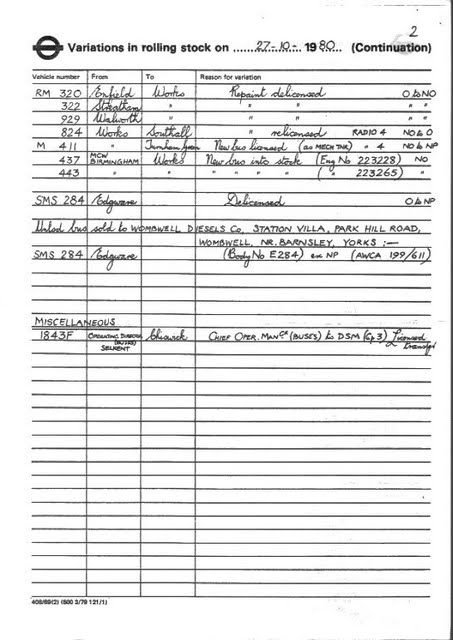 2
Variations in rolling stock on 27-10- 1980 (Continuation)
Vehicle number From To Reason for variation
RM 320 Enfield Works Repaint delicensed O to NO
322 Streatham " " " " "
929 Walworth " " " " "
824 Works Southall " relicensed RADIO 4 NO to O
M 411 " Turnham Green New bus licensed (as MECH TNR) " 4 NO to NP
437 MCW BIRMINGHAM Works New bus into stock (Eng No 223228) NO
443 " " " " " " ( " 223265) "
SMS 284 Edgware Delicensed O to NP
Unlsd bus sold to WOMBWELL DIESELS Co, STATION VILLA, PARK HILL ROAD,
WOMBWELL, NR. BARNSLEY, YORKS :—
SMS 284 Edgware (Body No E284) ex NP (AWCA 199/611)
MISCELLANEOUS
1843F OPERATING DIRECTOR (BUSES) SELKENT Chiswick CHIEF OPER. MANGR (BUSES) to DSM (Gp 3) Licensed Transfer
408/69(2) (500 3/79 121/1)